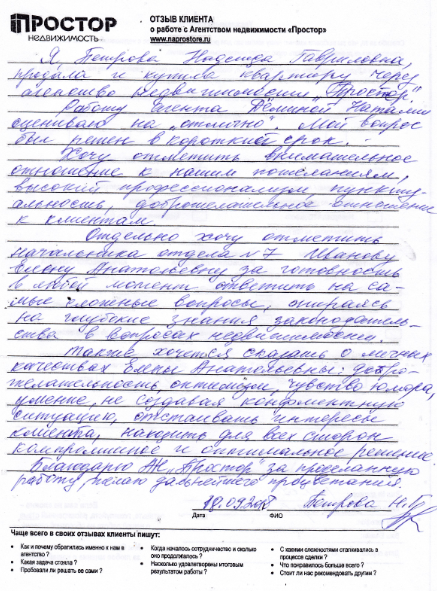 ПРОСТОР
НЕДВИЖИМОСТЬ
ОТЗЫВ КЛИЕНТА
о работе с Агентством недвижимости «Простор»
www.naprostore.ru
Я, Петрова Надежда Гавриловна,
продала и купила квартиру через
агенство недвижимости „Простор".
Работу агента Дёминой Наталии
оцениваю на „отлично". Мой вопрос
был решен в короткий срок.
Хочу отметить внимательное
отношение к нашим пожеланиям,
высокий профессионализм, пункту-
альность, доброжелательное отношение
к клиентам.
Отдельно хочу отметить
начальника отдела №7 Иванову
Елену Анатольевну за готовность
в любой момент ответить на са-
мые сложные вопросы, опираясь
на глубокие знания законодатель-
ства в вопросах недвижимости.
Также хочется сказать о личных
качествах Елены Анатольевны: добро-
желательность, оптимизм, чувство юмора,
умение, не создавая конфликтную
ситуацию, отстаивать интересы
клиента, находить для всех сторон
компромисное и оптимальное решение.
Благодарю АН „Простор" за проделанную
работу, желаю дальнейшего процветания.
Петрова Н.Г.
Дата ФИО
Чаще всего в своих отзывах клиенты пишут:
• Как и почему обратились именно к нам в агентство ?
• Какая задача стояла ?
• Пробовали ли решать ее сами ?
• Когда началось сотрудничество и сколько оно продолжалось ?
• Насколько удовлетворены итоговым результатом работы ?
• С какими сложностями сталкивались в процессе сделки ?
• Что понравилось больше всего ?
• Стоит ли нас рекомендовать другим ?